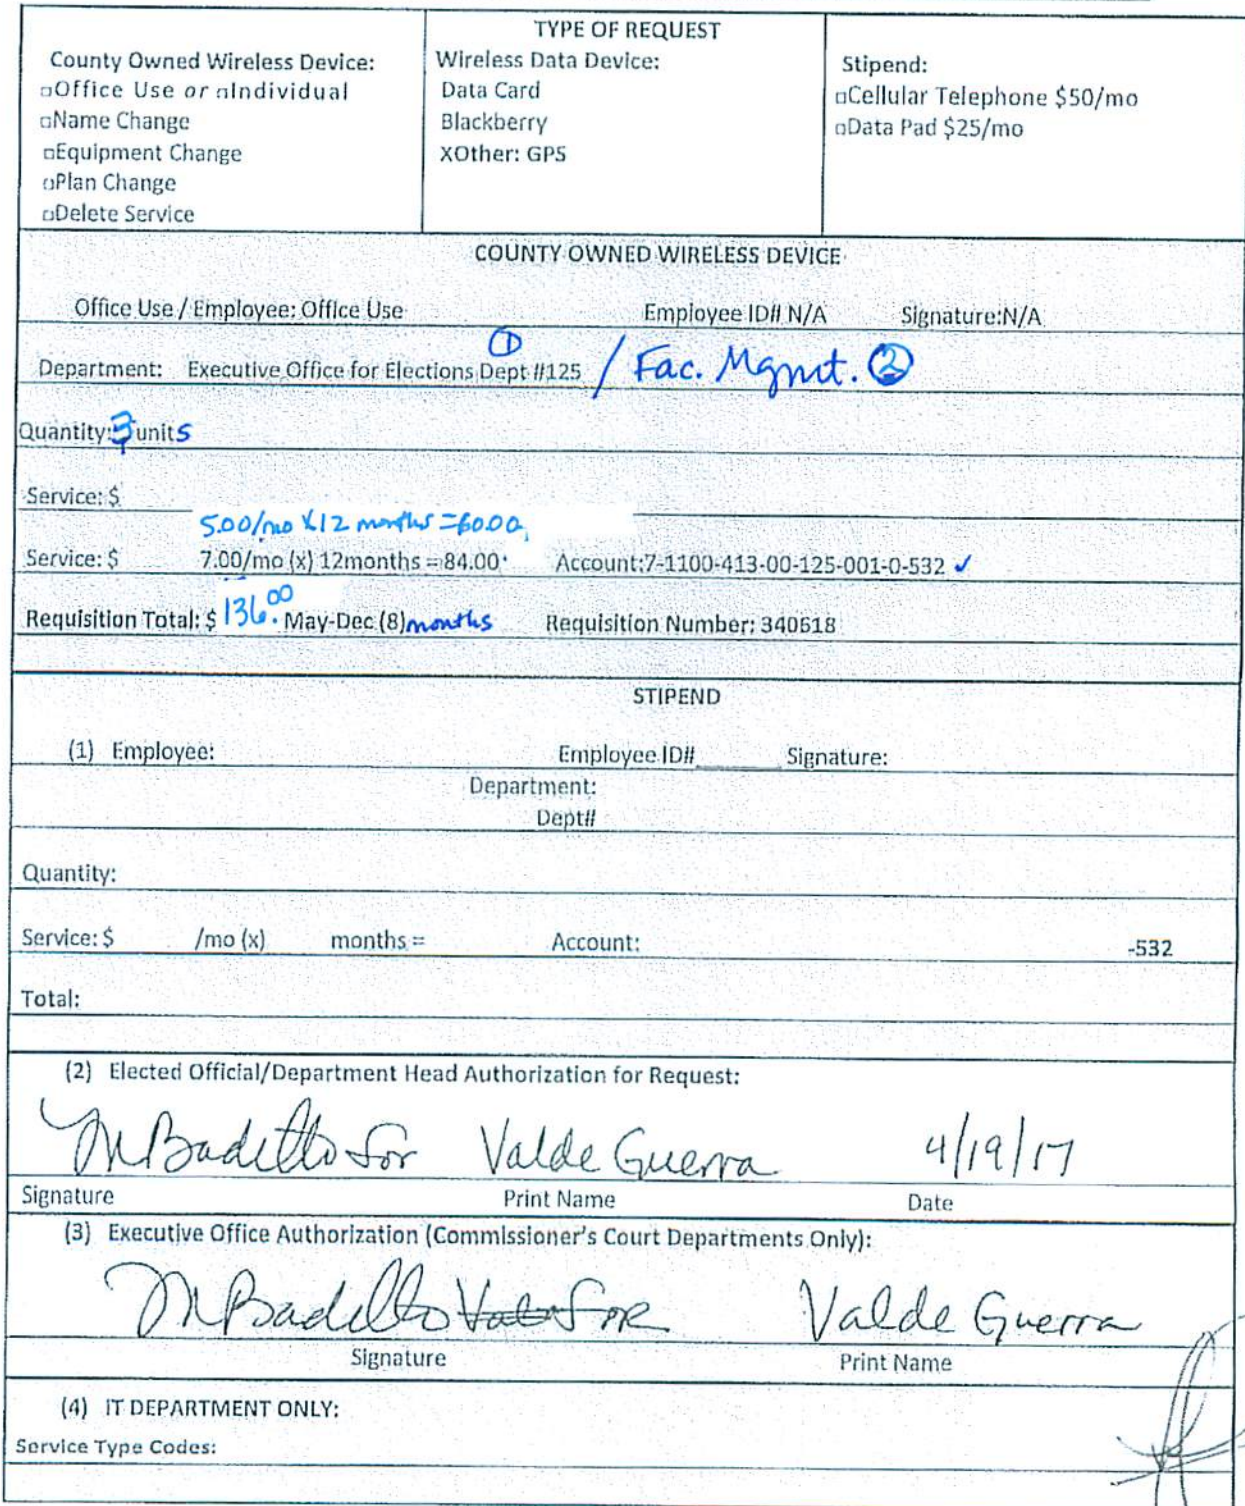 TYPE OF REQUEST
County Owned Wireless Device:
□Office Use or □Individual
□Name Change
□Equipment Change
□Plan Change
□Delete Service
Wireless Data Device:
Data Card
Blackberry
XOther: GPS
Stipend:
□Cellular Telephone $50/mo
□Data Pad $25/mo
COUNTY OWNED WIRELESS DEVICE
Office Use / Employee: Office Use Employee ID# N/A Signature:N/A
Department: Executive Office for Elections Dept #125 ① / Fac. Mgmt. ②
Quantity: 3 units
Service: $
5.00/mo x 12 months = 60.00
Service: $ 7.00/mo (x) 12months = 84.00 Account:7-1100-413-00-125-001-0-532 ✓
Requisition Total: $ 136.00 May-Dec (8) months Requisition Number: 340618
STIPEND
(1) Employee: Employee ID# Signature:
Department:
Dept#
Quantity:
Service: $ /mo (x) months = Account: -532
Total:
(2) Elected Official/Department Head Authorization for Request:
M Badillo for Valde Guerra 4/19/17
Signature Print Name Date
(3) Executive Office Authorization (Commissioner's Court Departments Only):
M Badillo for Valde Guerra
Signature Print Name
(4) IT DEPARTMENT ONLY:
Service Type Codes: